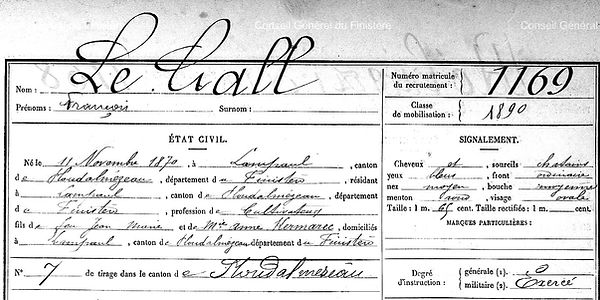 Conseil Général du Finistère
Conseil Général
Le Gall
Nom :
Prénoms : François Surnom :
Numéro matricule du recrutement : 1169
Classe de mobilisation : 1890
ÉTAT CIVIL.
Né le 11 Novembre 1870, à Lampaul, canton
de Ploudalmézeau, département du Finistère, résidant
à Lampaul, canton de Ploudalmézeau, département
du Finistère, profession de Cultivateur
fils de feu Jean Marie et de Mie Anne Hermarec, domiciliés
à Lampaul, canton de Ploudalmézeau département du Finistère
N° 7 de tirage dans le canton de Ploudalmézeau
SIGNALEMENT.
Cheveux et sourcils chatains
yeux bleus front ordinaire
nez moyen bouche moyenne
menton rond visage ovale
Taille : 1 m. 65 cent. Taille rectifiée : 1 m. cent.
MARQUES PARTICULIÈRES :
Degré d'instruction :
générale (1).
militaire (2). Exercé